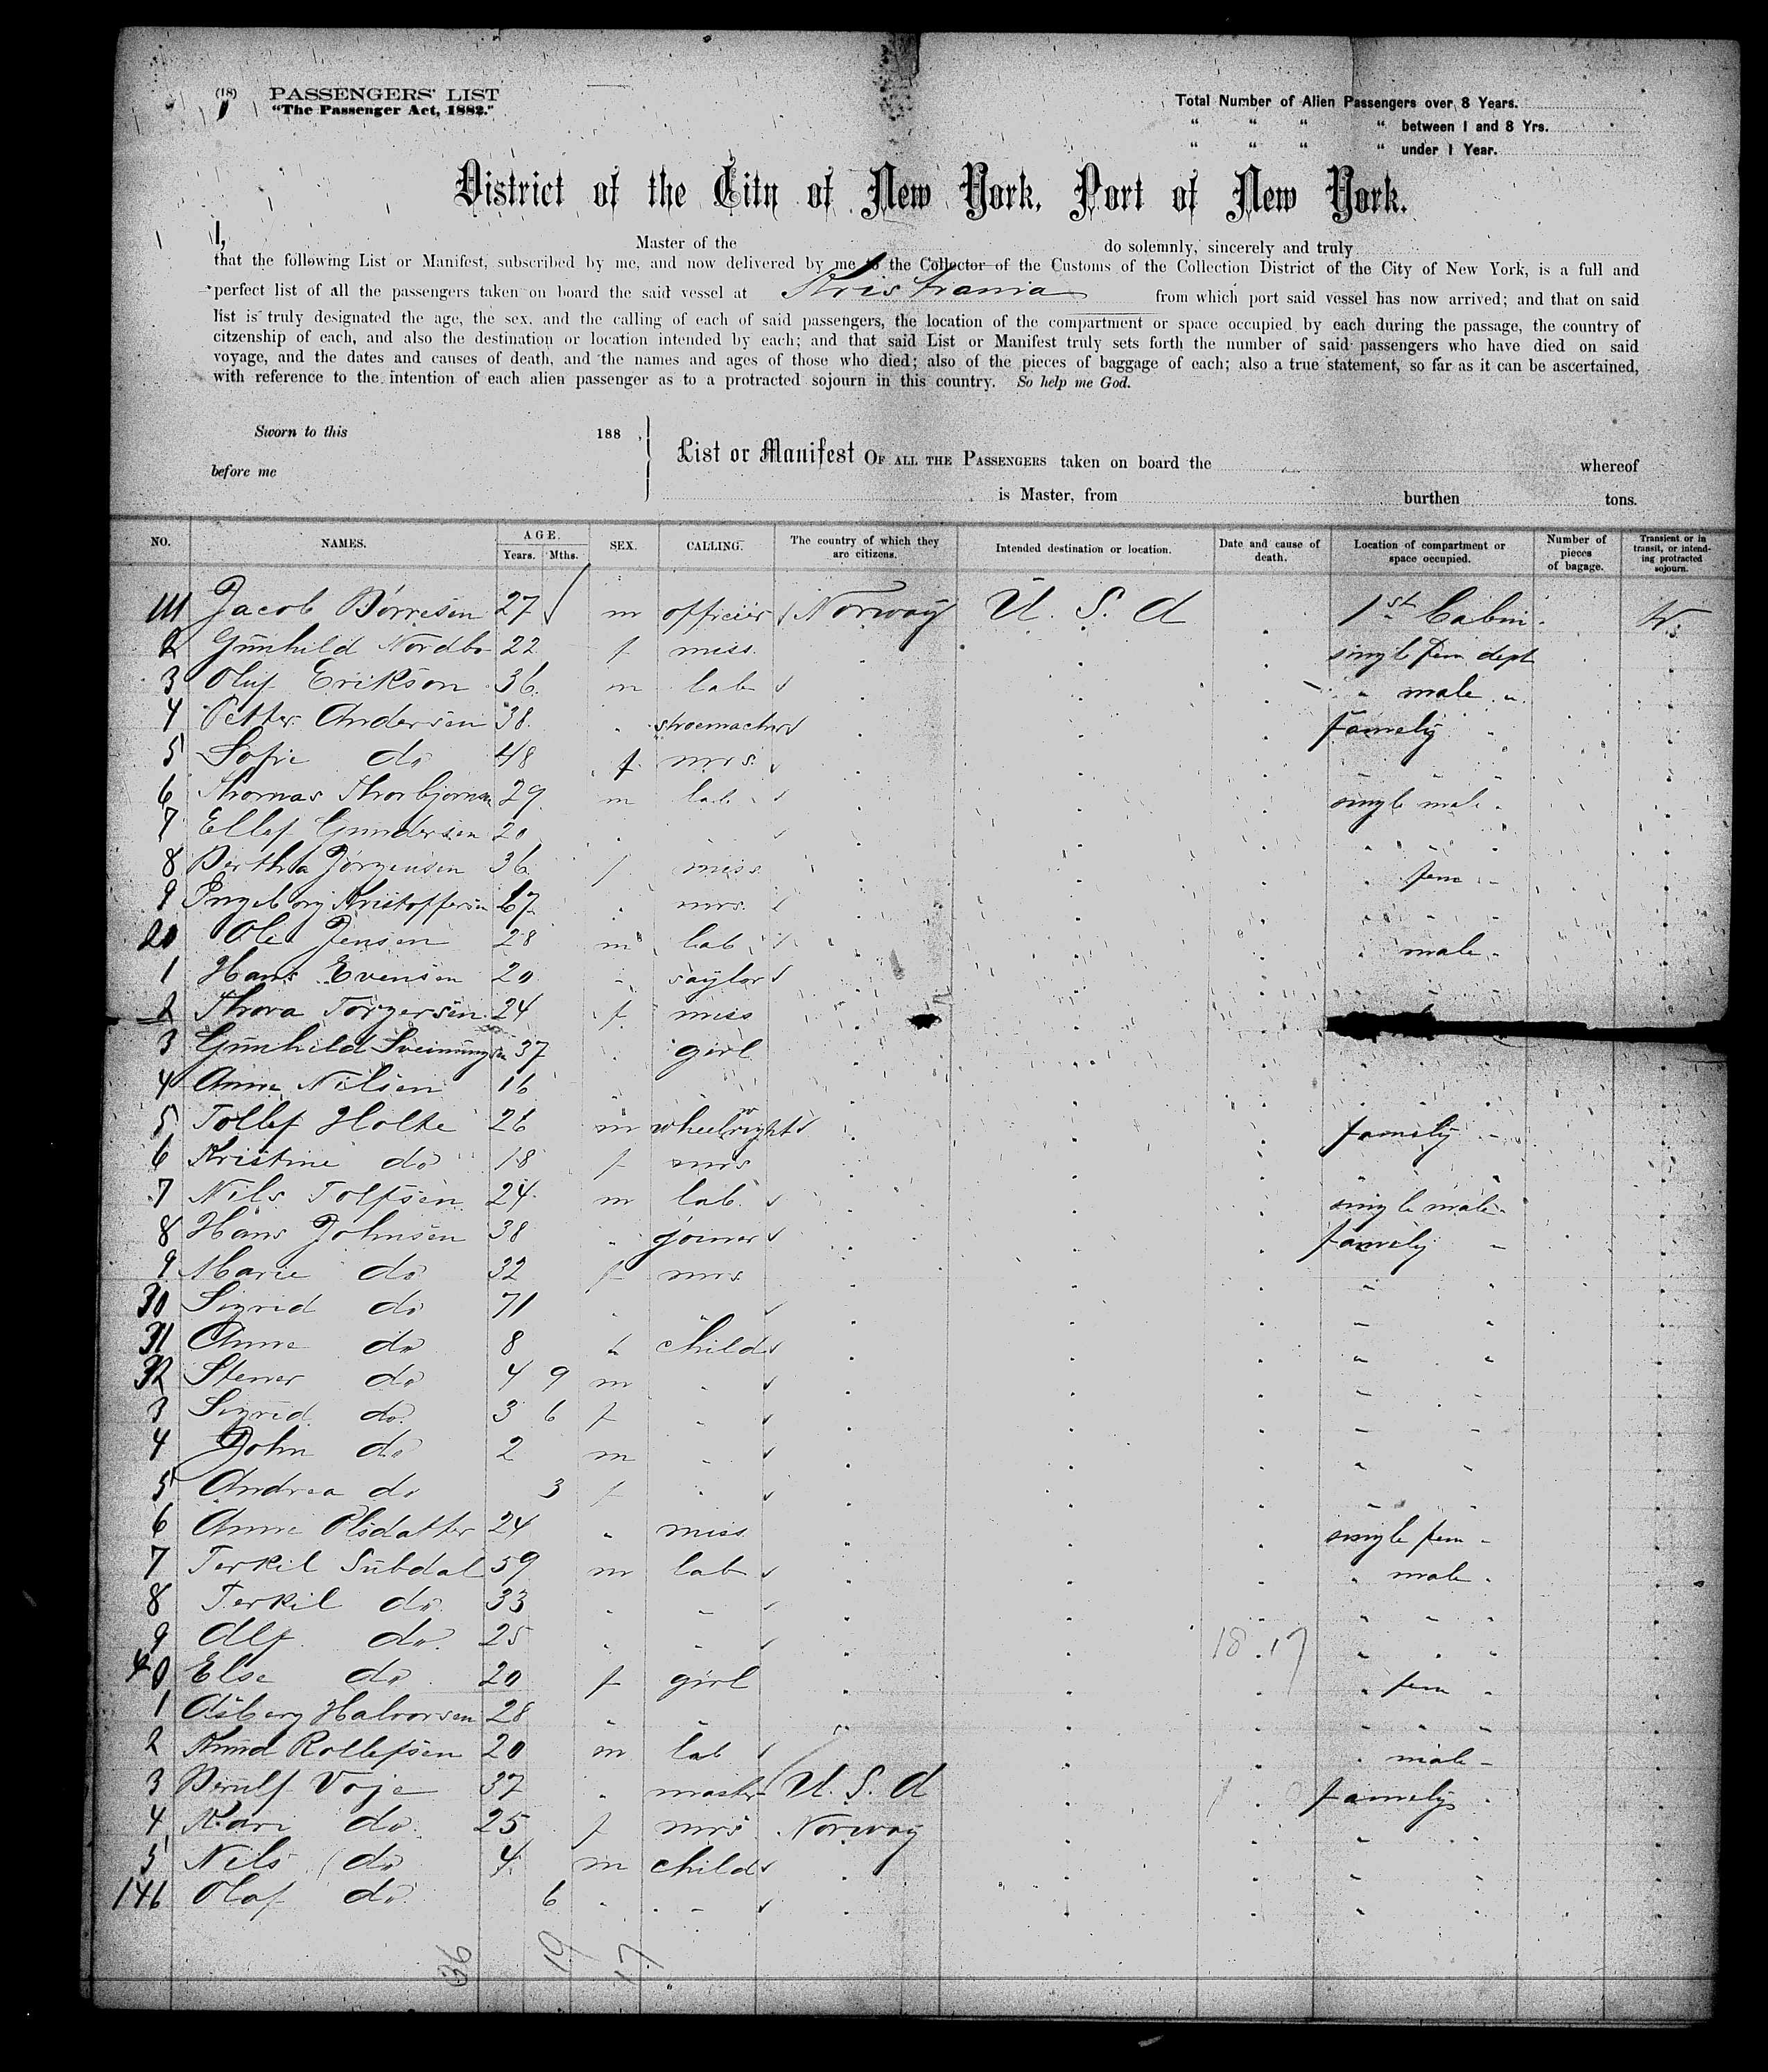 (18) PASSENGERS' LIST
"The Passenger Act, 1882."
Total Number of Alien Passengers over 8 Years.
" " " " between 1 and 8 Yrs.
" " " " under 1 Year.
District of the City of New York, Port of New York.
I, Master of the do solemnly, sincerely and truly
that the following List or Manifest, subscribed by me, and now delivered by me to the Collector of the Customs of the Collection District of the City of New York, is a full and
perfect list of all the passengers taken on board the said vessel at Kristiania from which port said vessel has now arrived; and that on said
list is truly designated the age, the sex. and the calling of each of said passengers, the location of the compartment or space occupied by each during the passage, the country of
citzenship of each, and also the destination or location intended by each; and that said List or Manifest truly sets forth the number of said passengers who have died on said
voyage, and the dates and causes of death, and the names and ages of those who died; also of the pieces of baggage of each; also a true statement, so far as it can be ascertained,
with reference to the intention of each alien passenger as to a protracted sojourn in this country. So help me God.
Sworn to this 188 ,
before me
List or Manifest OF ALL THE PASSENGERS taken on board the whereof
is Master, from burthen tons.
NO. NAMES. AGE. Years. Mths. SEX. CALLING. The country of which they are citizens. Intended destination or location. Date and cause of death. Location of compartment or space occupied. Number of pieces of bagage. Transient or in transit, or intending protracted sojourn.
111 Jacob Börresen 27 m officier Norway U. S. A 1st Cabin
2 Gunhild Nordbo 22 f miss single fem dept
3 Oluf Erikson 36 m lab " male "
4 Petter Andersen 38 " shoemacher famely "
5 Sofie do 48 f mrs " " "
6 Thomas Thorbjornsen 29 m lab single male "
7 Ellef Gundersen 20 " " " " "
8 Bertha Jörgensen 36 f miss " fem "
9 Ingeborg Kristoffersen 67 " mrs " " "
20 Ole Jensen 28 m lab " male "
1 Hans Evensen 20 " saylor " " "
2 Thora Torgersen 24 f miss
3 Gunhild Sveinungsen 37 " girl " " "
4 Anne Nilsen 16 " " " " "
5 Tollef Holte 26 m wheelwright famely "
6 Kristine do 18 f mrs " "
7 Nils Tolfsen 24 m lab single male "
8 Hans Johnsen 38 " joiner famely "
9 Marie do 32 f mrs " "
30 Sigrid do 71 " " " "
31 Anne do 8 " child " "
32 Stener do 4 9 m " " "
3 Sigrid do 3 6 f " " "
4 John do 2 m " " "
5 Andrea do 3 f " " "
6 Anne Olsdatter 24 " miss single fem "
7 Terkil Subdal 59 m lab " male "
8 Terkil do 33 " " " " "
9 Alf do 25 " " 18 17 " " "
40 Else do 20 f girl " fem "
1 Asberg Halvorsen 28 " " " " "
2 Knud Rollefsen 20 m lab " male "
3 Voje 37 " U. S. A famely "
4 Kari do 25 f mrs Norway " "
5 Nils do 4 m child " "
146 Olaf do 6 " " " "
36 19 17